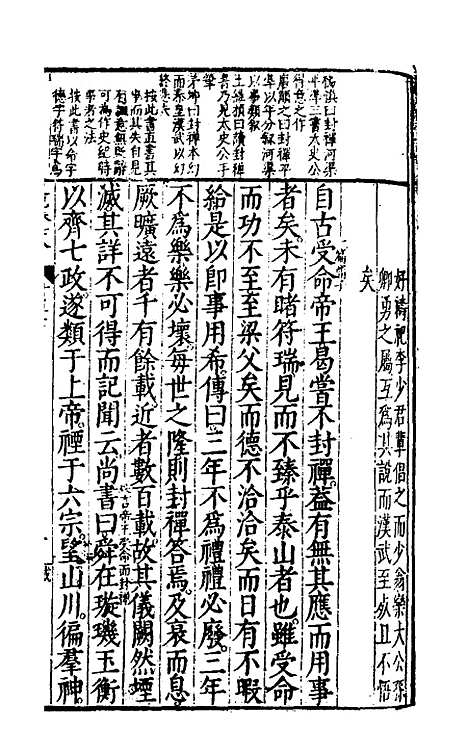 好禱祝李少君輩倡之而少翁欒大公孫
卿勇之屬互為其說而漢武至死且不悟
矣
自古受命帝王曷嘗不封禪蓋有無其應而用事
者矣未有睹符瑞見而不臻乎泰山者也雖受命
而功不至至梁父矣而德不洽洽矣而日有不暇
給是以即事用希傳曰三年不為禮禮必廢三年
不為樂樂必壞每世之隆則封禪答焉及衰而息
厥曠遠者千有餘載近者數百載故其儀闕然堙
滅其詳不可得而記聞云尚書曰舜在璇璣玉衡
以齊七政遂類于上帝禋于六宗望山川徧羣神
楊慎曰封禪河渠
平準三書太史公
得意之作
唐順之曰封禪平
準以年分叙河渠
以事類叙
王維楨曰讀封禪
書乃見太史公手
筆
茅坤曰封禪本幻
而秦皇漢武以幻
終惑
按此書直書其
事而其失自見
有諷意無貶辭
可為作史紀時
事者之法
按此書以命字
德字符瑞字為